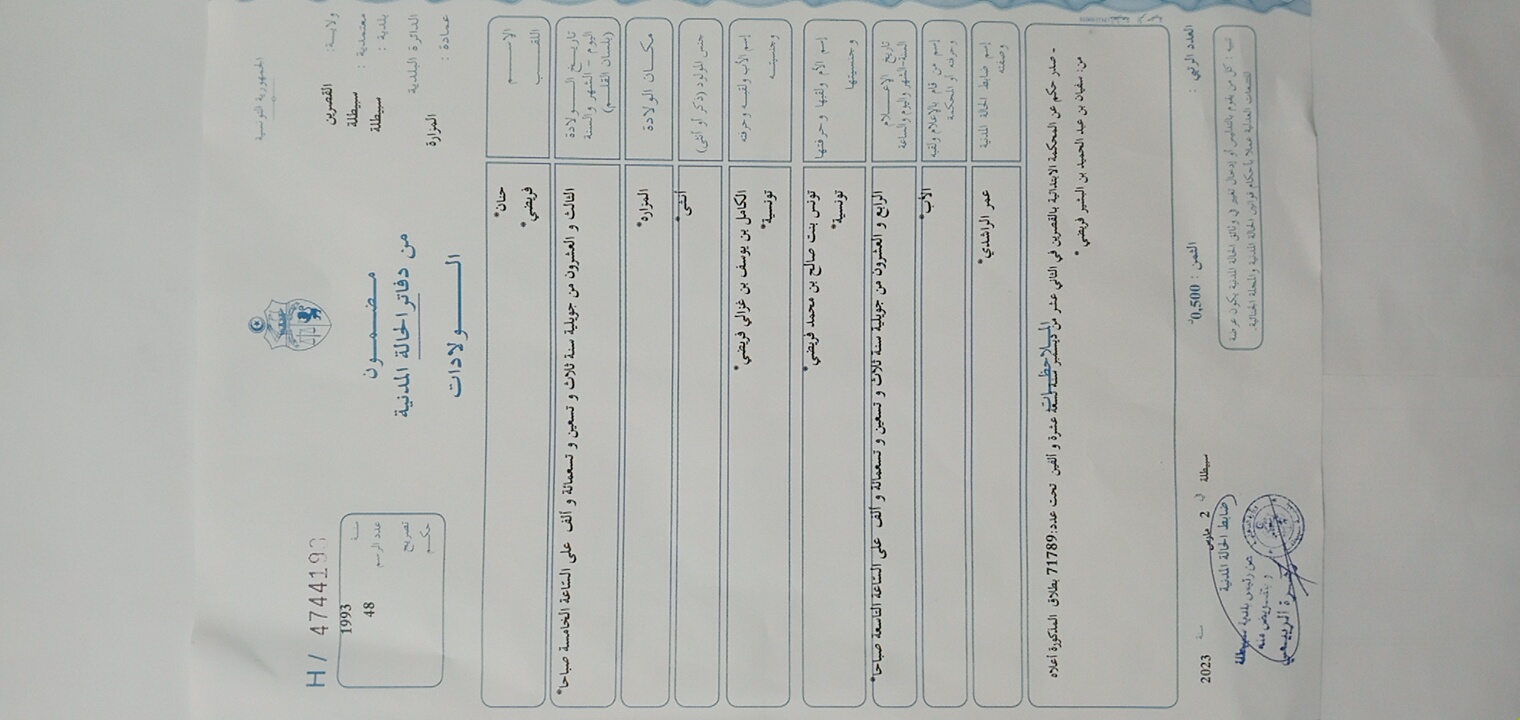 الجمهورية التونسية
ولايـة: القصرين
معتمدية: سبيطلة
بلدية: سبيطلة
الدائرة البلدية
عمادة: المزارة
مـضـمـون
من دفاتر الحالة المدنية
الـــولادات
H/ 4744193
سنة 1993
عدد الرسم 48
تصريح
حكم
الإســـم
اللقـــب
حنان*
فريضي*
تاريـخ الــولادة
(اليوم - الشهر والسنة
بلسان القلـم)
الثالث و العشرون من جويلية سنة ثلاث و تسعين و تسعمائة و ألف على الساعة الخامسة صباحا*
مكـان الولادة
المزارة*
جنس المولود (ذكر أو أنثى)
أنثى*
إسم الأب ولقبـه وحرفته
وجنسيتـه
الكامل بن يوسف بن غزالي فريضي*
تونسية*
إسم الأم ولقبها وحرفتها
وجنسيتها
تونس بنت صالح بن محمد فريضي*
تونسية*
تاريخ الإعـــلام
السنة-الشهر واليوم والساعة
الرابع و العشرون من جويلية سنة ثلاث و تسعين و تسعمائة و ألف على الساعة التاسعة صباحا*
إسم من قام بالإعلام ولقبه
وحرفته أو المحكمة
الأب*
إسم ضابط الحالة المدنية
وصفته
عمر الراشدي*
الملاحظـات
- صدر حكم عن المحكمة الابتدائية بالقصرين في الثاني عشر من ديسمبر سنة تسعة عشرة و ألفين تحت عدد:71789 بطلاق المذكورة أعلاه
من: سفيان بن عبد الحميد بن البشير فريضي*
العدد الرتبي:
الثمن: 0,500د
سبيطلة في 2 مارس سنة 2023
ضابط الحالة المدنية
عن رئيس بلدية سبيطلة
و بتفويض منه
تنبيه: كل من يقوم بالتدليس أو إدخال تغيير في وثائق الحالة المدنية يكون عرضة
للتتبعات العدلية عملا بأحكام قوانين الحالة المدنية والمجلة الجنائية.